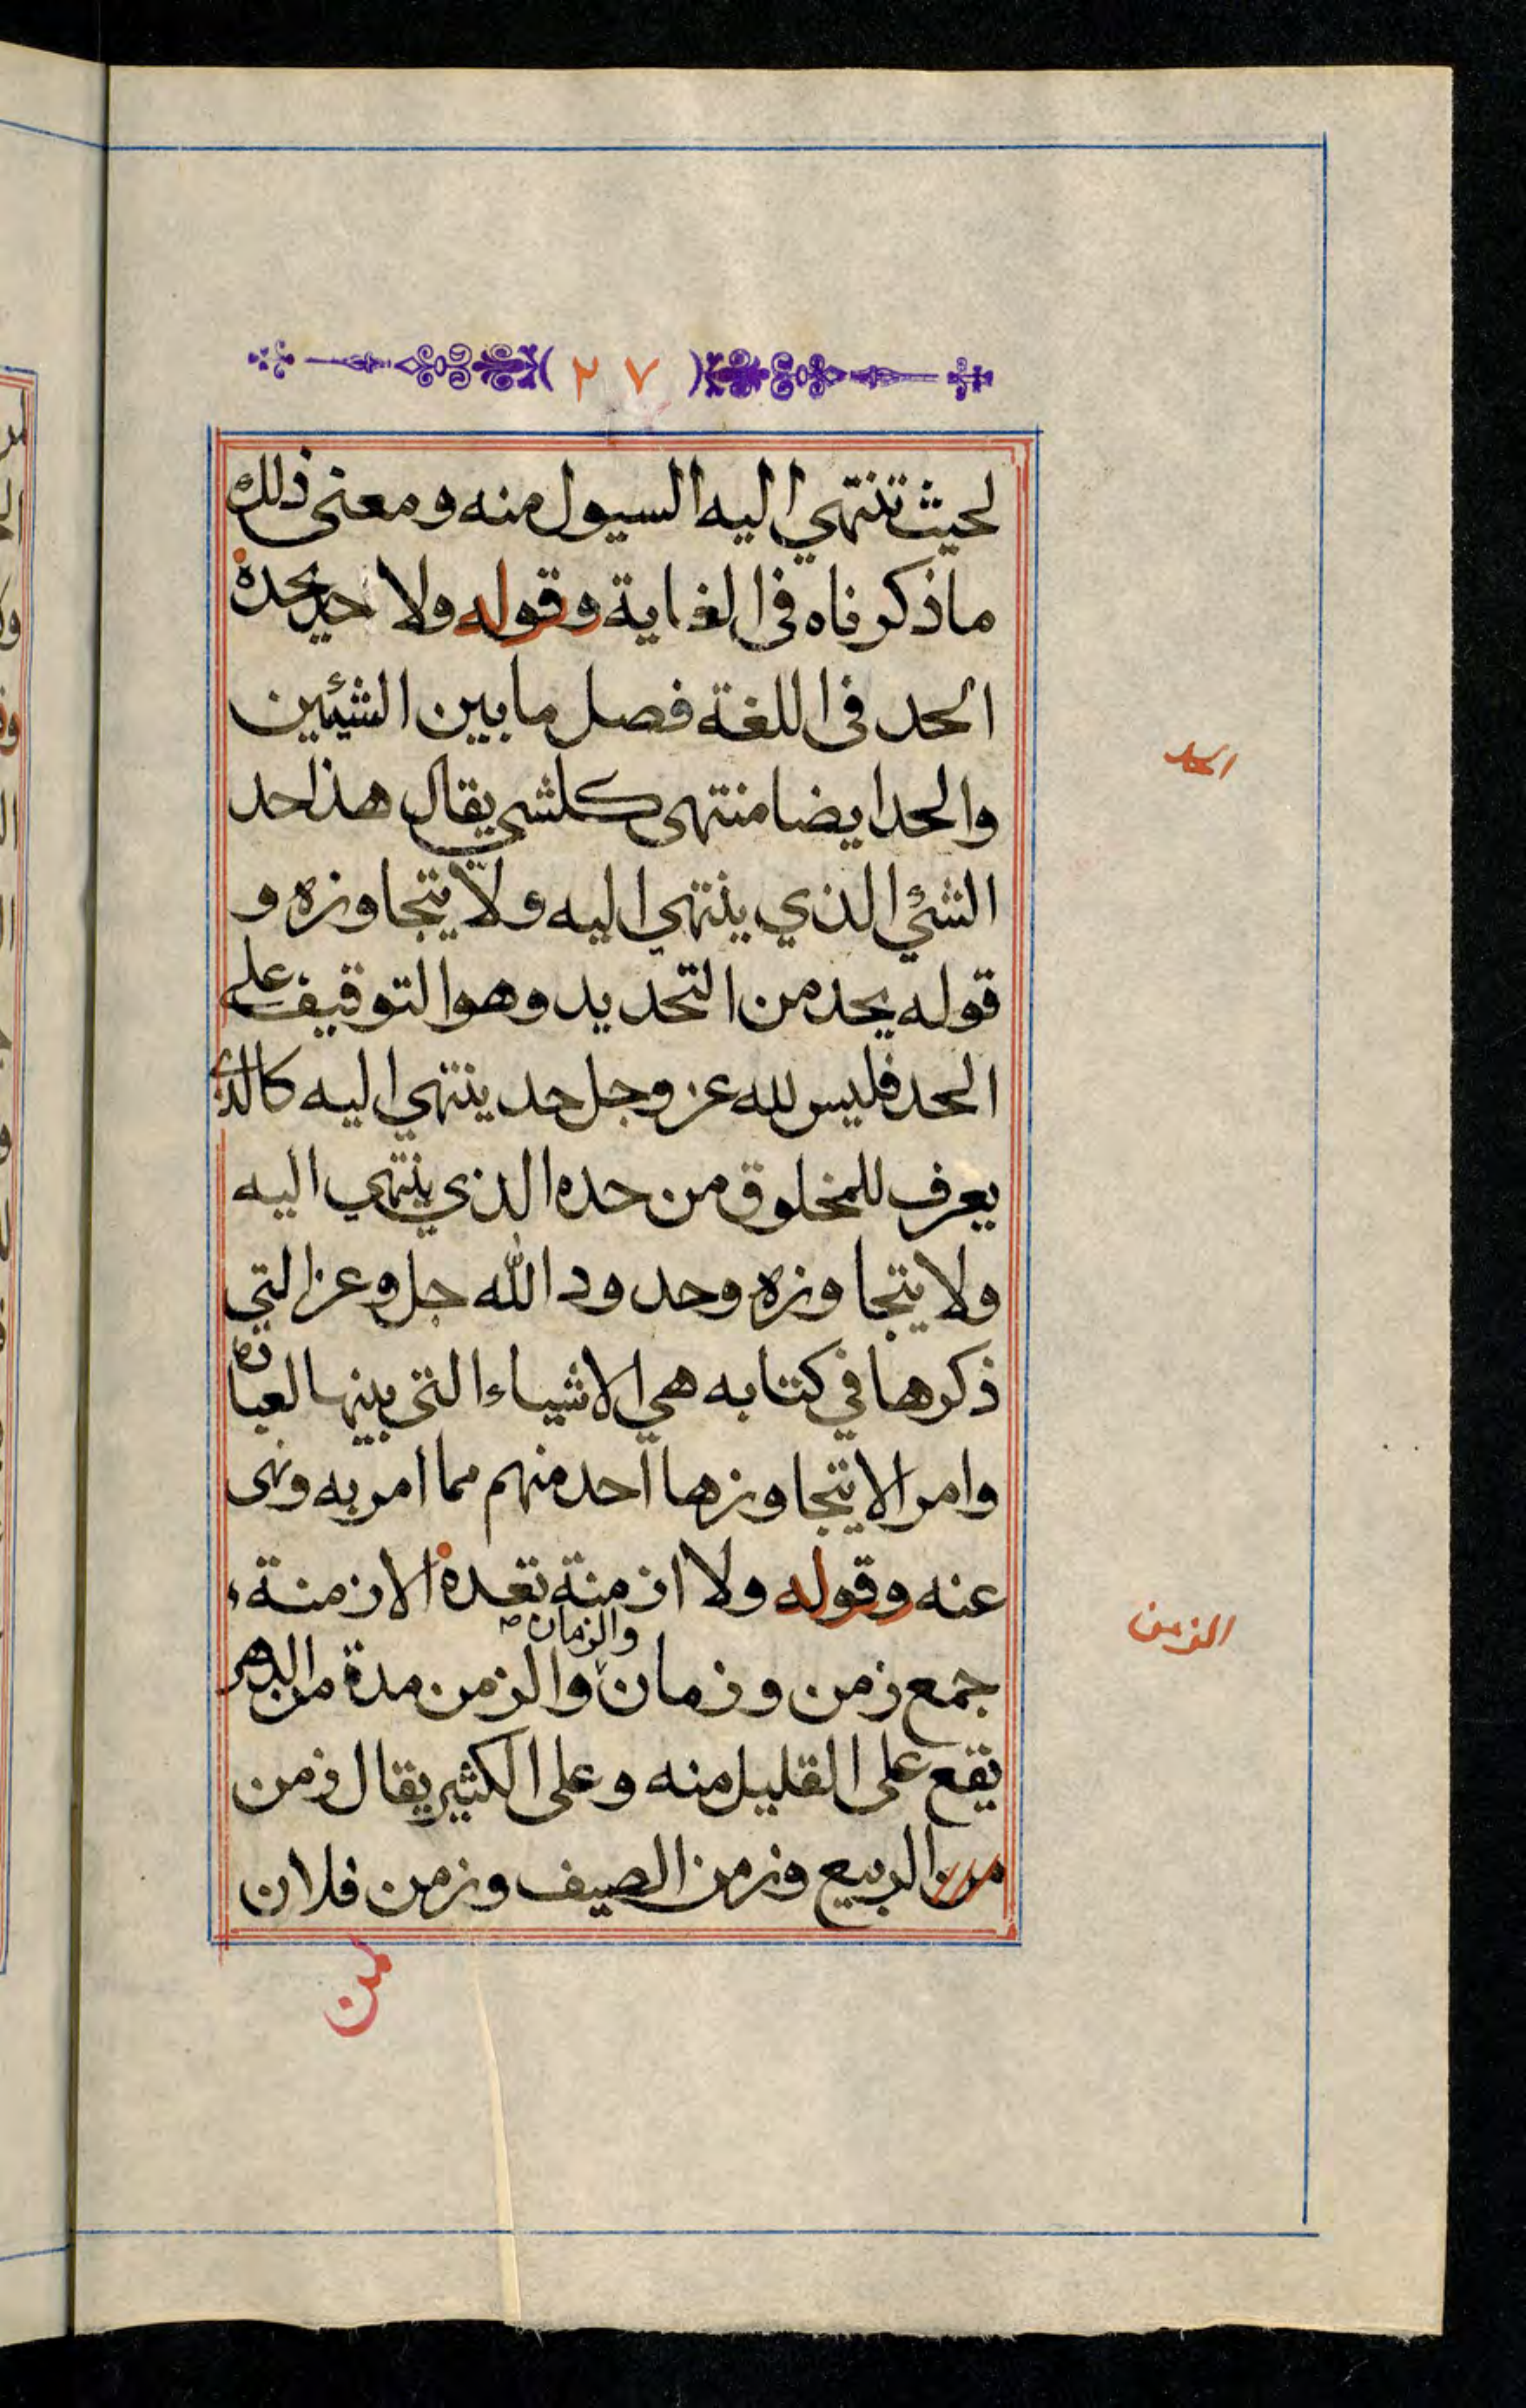 ٢٧
لحيث تنتهي اليه السيول منه ومعنى ذلك
ما ذكرناه في الغاية وقوله ولا حد يحده
الحد في اللغة فصل ما بين الشيئين
والحد ايضا منتهى كلشي يقال هذا حد
الشيء الذي ينتهي اليه ولا يتجاوزه و
قوله يحد من التحديد وهو التوقيف على
الحد فليس لله عز وجل حد ينتهي اليه كالذي
يعرف للمخلوق من حده الذي ينتهي اليه
ولا يتجاوزه وحدود الله جل وعز التي
ذكرها في كتابه هي الاشياء التي بينها لعباده
وامر الا يتجاوزها احد منهم مما امر به ونهى
عنه وقوله ولا ازمنة تعده الازمنة
جمع زمن وزمان والزمان والزمن مدة من الدهر
يقع على القليل منه وعلى الكثير يقال زمن
من الربيع وزمن الصيف وزمن فلان
الحد
الزمن